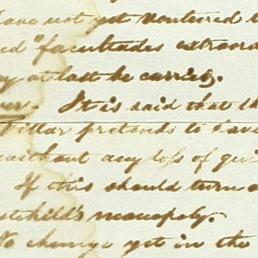 have not yet ventured t
ed "facultades extraord
y at last be carried.
ver. It is said that th
Pillar pretends to have
without any loss of qui
If this should turn o
stchild's monopoly.
No change yet in the